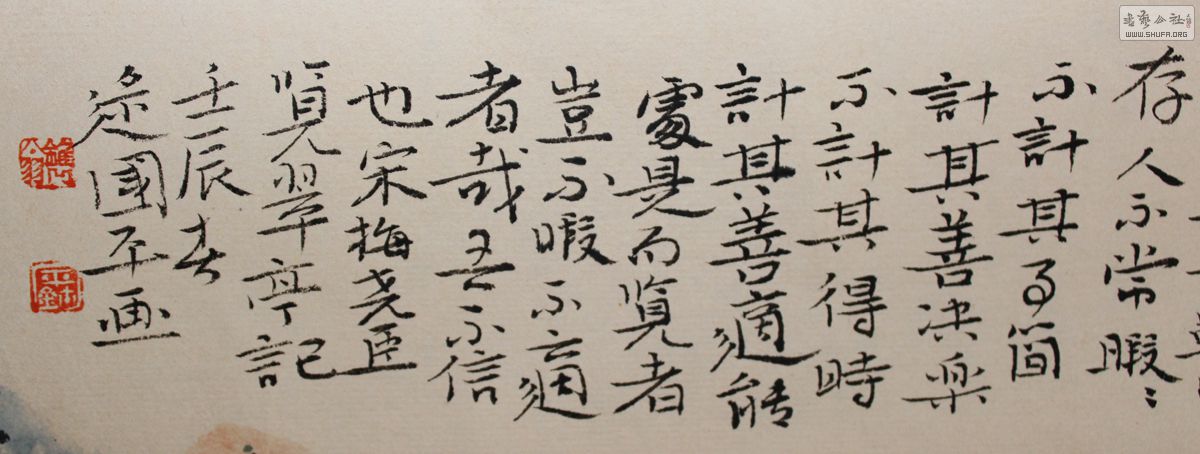 存人不常暇〻
不計其事簡
計其善决楽
不計其得時
計其善適能
處是而覽者
豈不暇不適
者哉吾不信
也宋梅尧臣
覽翠亭記
壬辰春
逯國平画
書藝公社
WWW.SHUFA.ORG